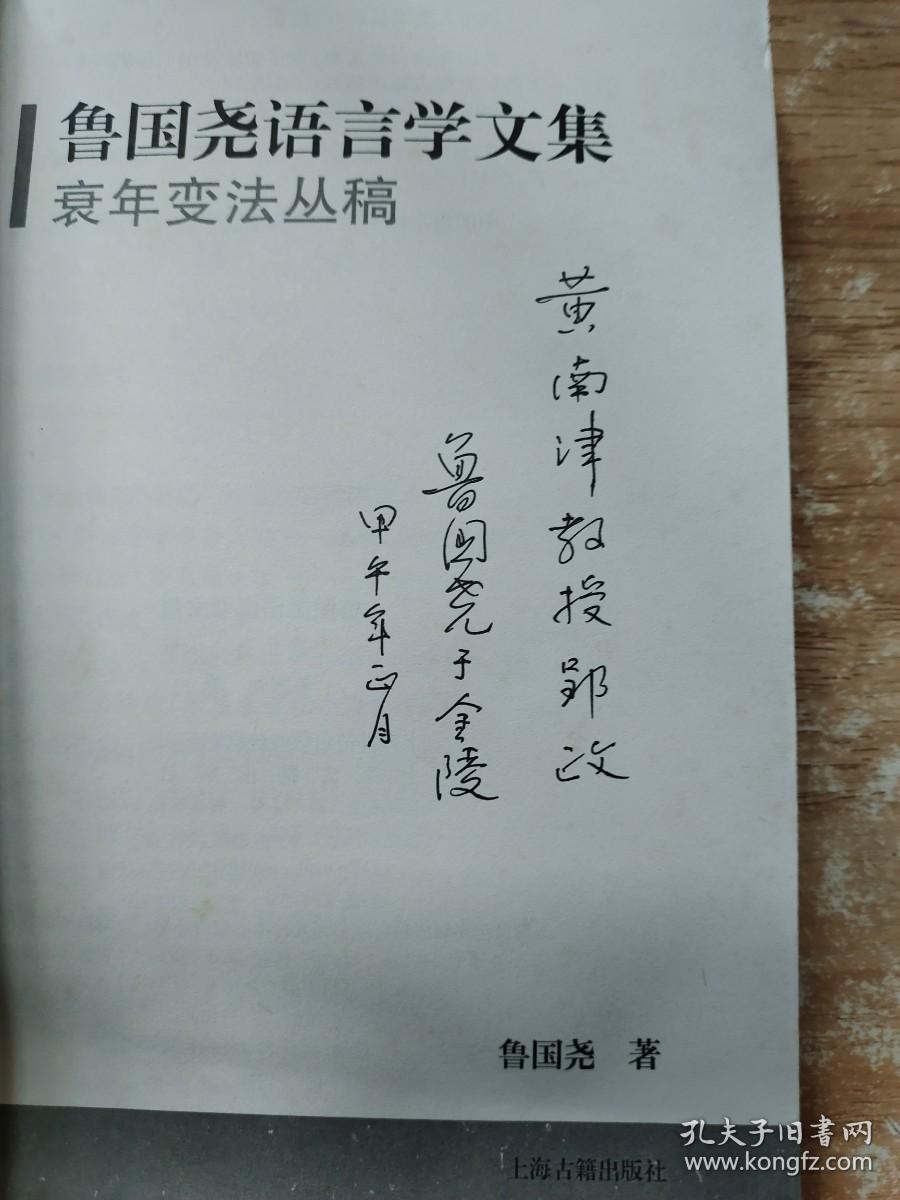 鲁国尧语言学文集
衰年变法丛稿
黄南津教授郢政
鲁国尧于金陵
甲午年正月
鲁国尧 著
上海古籍出版社
孔夫子旧书网
www.kongfz.com